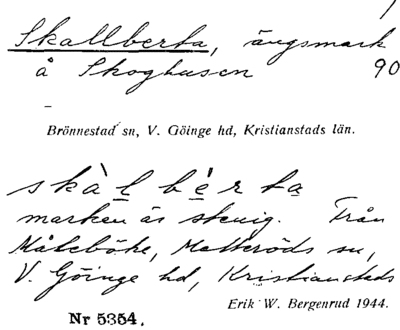 Skallberta, ängsmark
å Skoghusen 90
Brönnestad sn, V. Göinge hd, Kristianstads län.
skàlbérta
marken är stenig. Från
Måleböke, Matteröds sn,
V. Göinge hd, Kristianstads
Erik W. Bergenrud 1944.
Nr 5354.